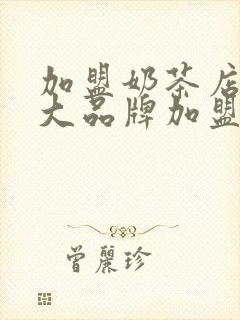 加盟奶茶店
大品牌加盟
曾丽珍